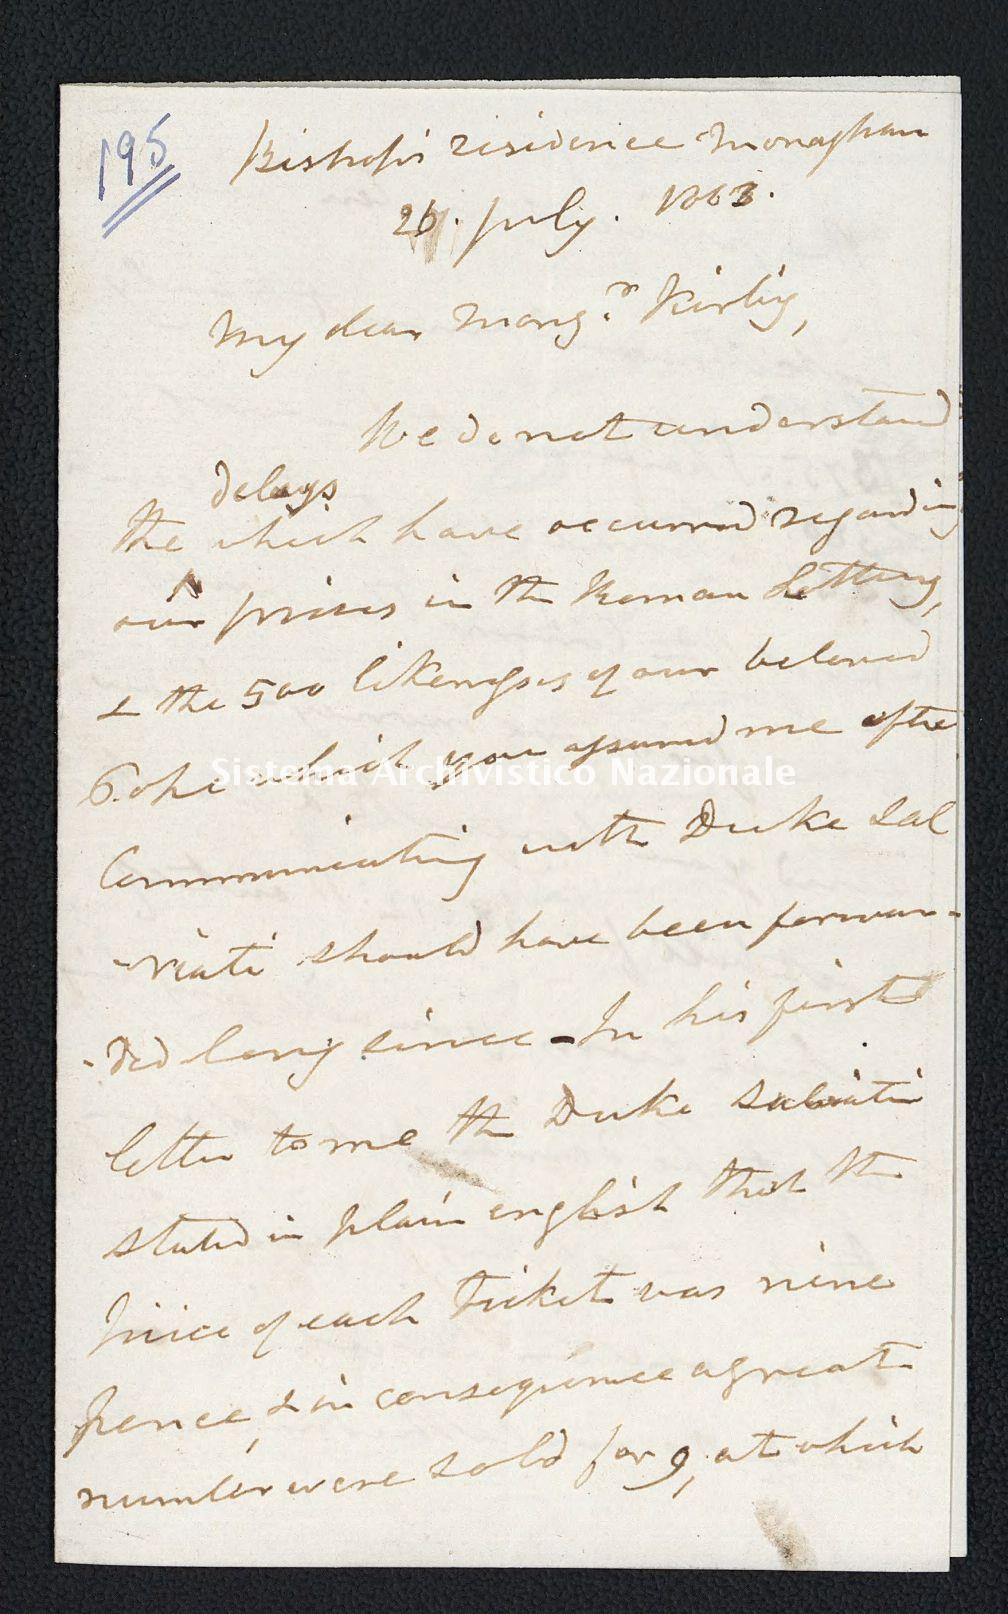 195
Bishop's residence Monaghan
26. July. 1863.
My dear Mong.r Kirby,
We do not understand
delays
the which have occurred regarding
our prizes in the Roman Lottery,
& the 500 likenesses of our beloved
Pope which you assured me after
Communicating with Duke Sal
-viati should have been forwar-
-ded long since - In his first
letter to me the Duke Salviati
stated in plain english that the
price of each Ticket was nine
pence, & in consequence a great
number were sold for 9, at which
Sistema Archivistico Nazionale